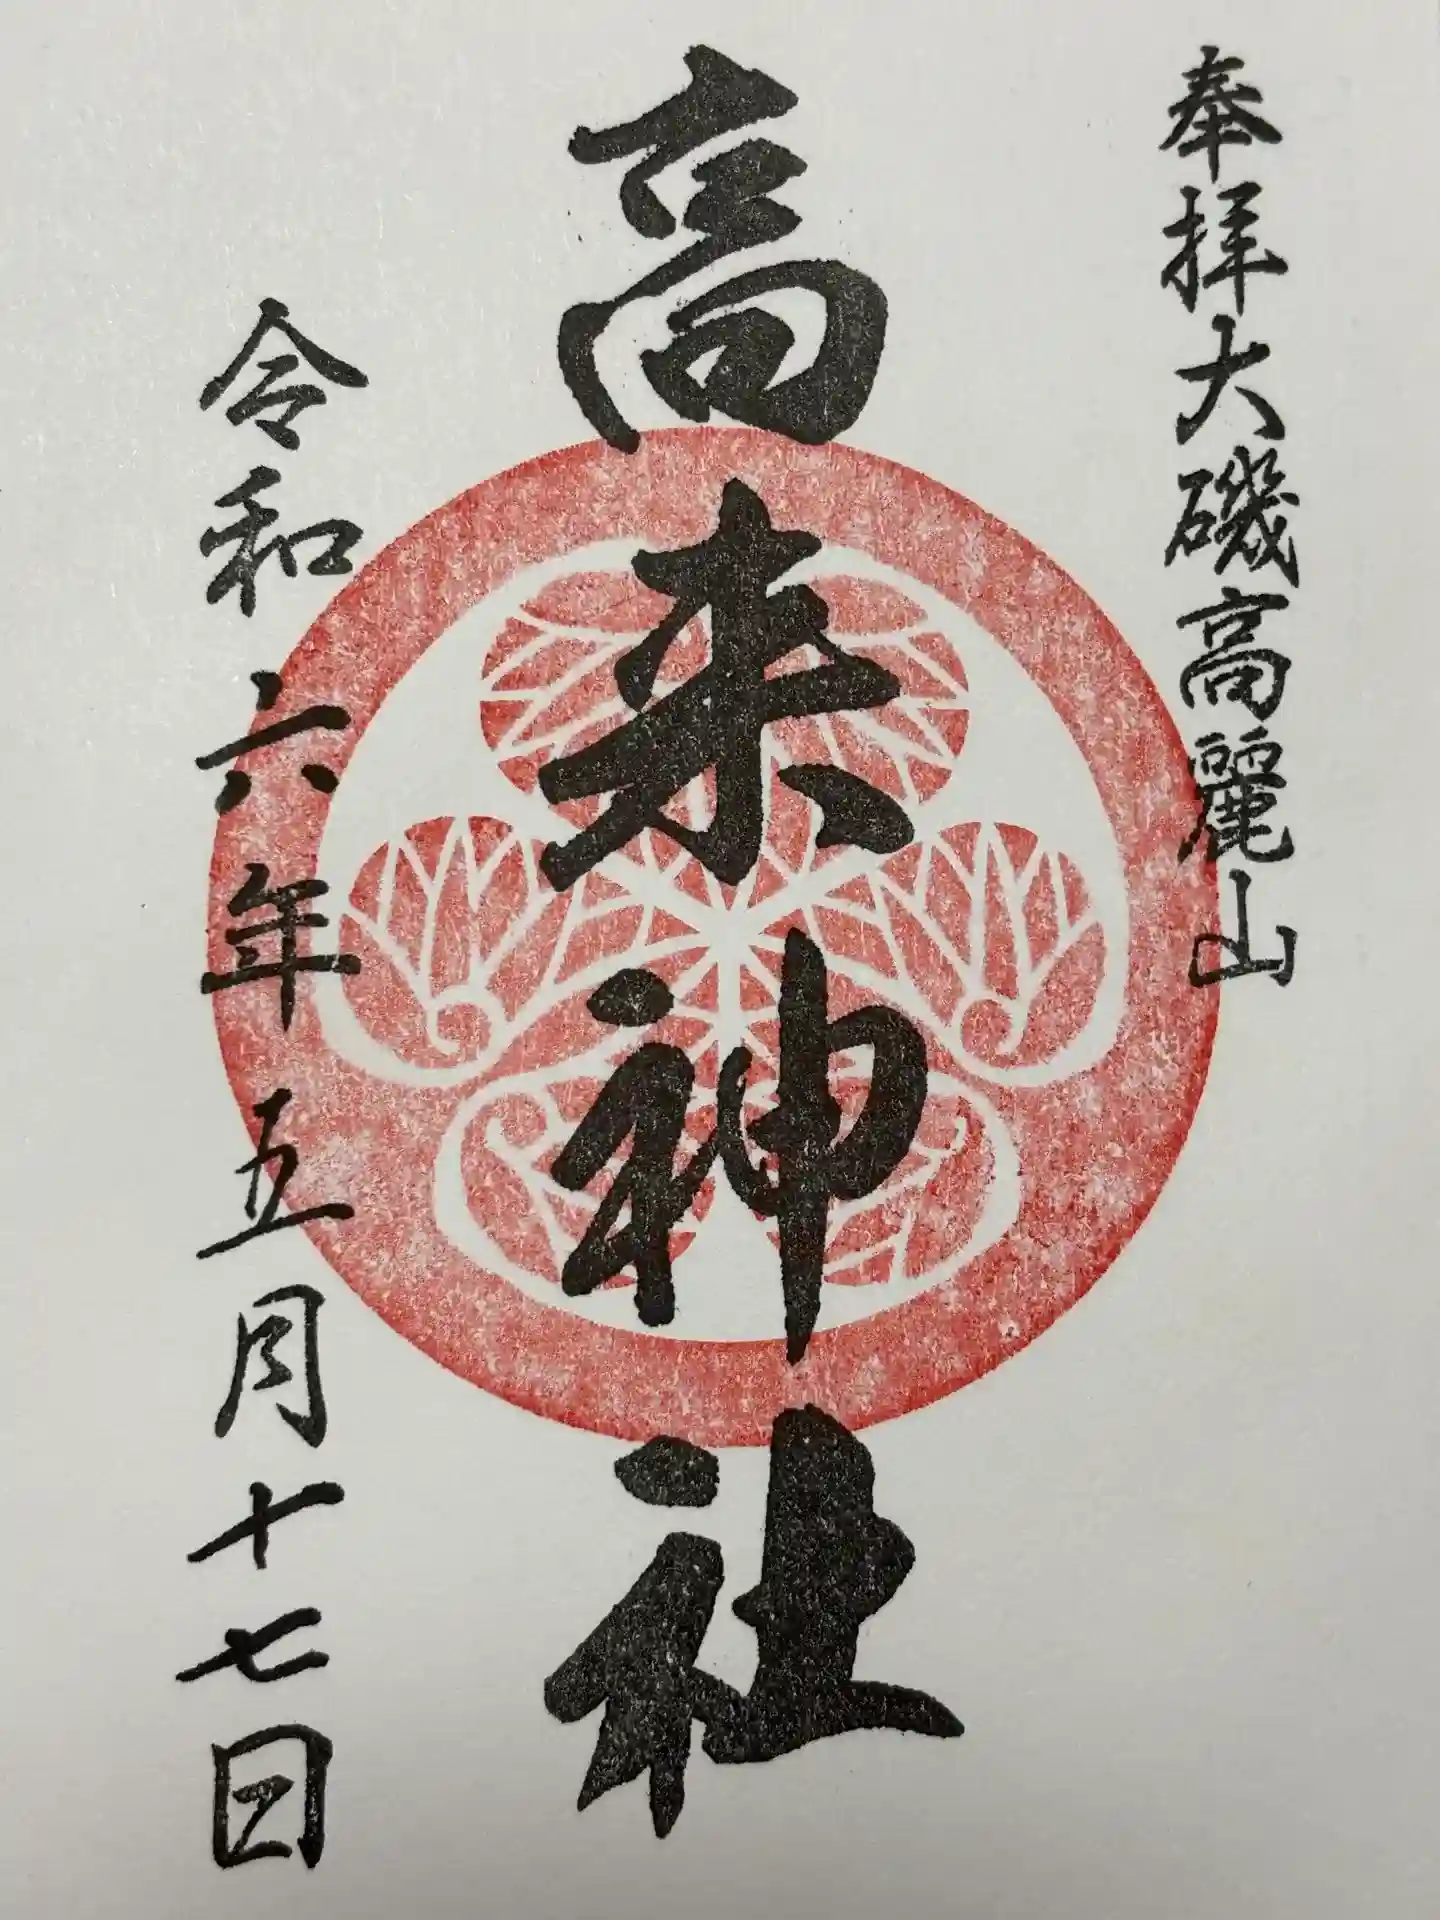 奉拝大磯高麗山
高来神社
令和六年五月十七日